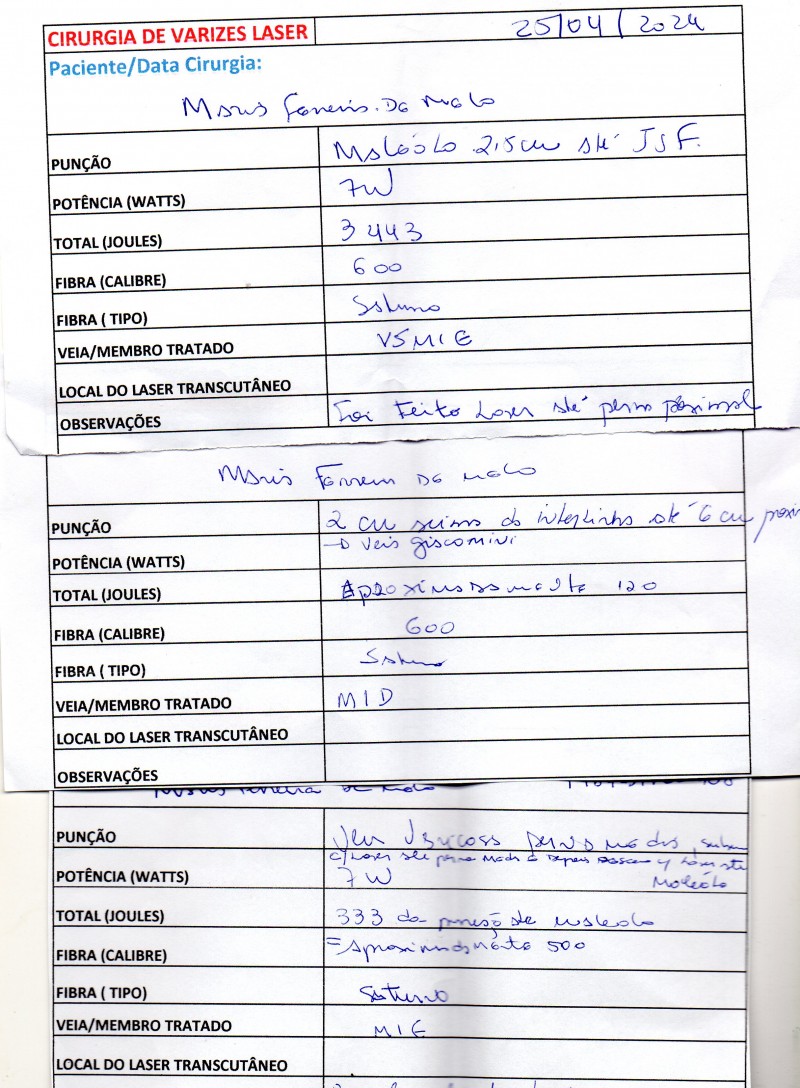 CIRURGIA DE VARIZES LASER 25/04/2024
Paciente/Data Cirurgia:
Da Melo
PUNÇÃO Maleólo 2,5cm até JSF.
POTÊNCIA (WATTS) 7W
TOTAL (JOULES) 3443
FIBRA (CALIBRE) 600
FIBRA ( TIPO) Saturno
VEIA/MEMBRO TRATADO VSMIE
LOCAL DO LASER TRANSCUTÂNEO
OBSERVAÇÕES Foi Feito Laser até perna proximal
De Melo
PUNÇÃO 2 cm acima do até 6 cm
POTÊNCIA (WATTS) → veia giacomini
TOTAL (JOULES) Aproximadamente 120
FIBRA (CALIBRE) 600
FIBRA ( TIPO) Saturno
VEIA/MEMBRO TRATADO MID
LOCAL DO LASER TRANSCUTÂNEO
OBSERVAÇÕES
de Melo
PUNÇÃO perna
c/ Laser até perna e Depois Laser até
POTÊNCIA (WATTS) 7W Maleólo
TOTAL (JOULES) 333 da punção até maleolo
FIBRA (CALIBRE) = aproximadamente 500
FIBRA ( TIPO) Saturno
VEIA/MEMBRO TRATADO MIE
LOCAL DO LASER TRANSCUTÂNEO